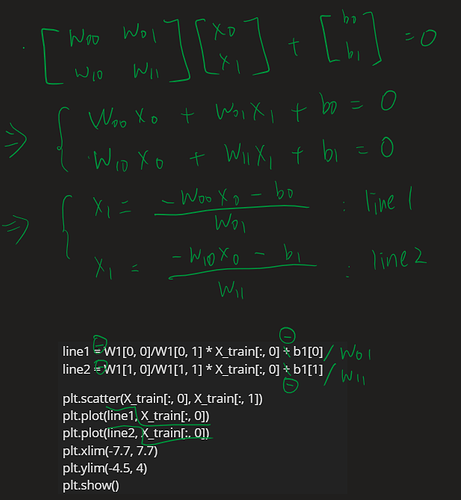 [ W00 W01 ] [ x0 ] + [ b0 ] = 0
[ W10 W11 ] [ x1 ] [ b1 ]
⇒ { W00 x0 + W01 x1 + b0 = 0
W10 x0 + W11 x1 + b1 = 0
⇒ { x1 = (-W00 x0 - b0) / W01 : line 1
x1 = (-W10 x0 - b1) / W11 : line 2
line1 = - W1[0, 0]/W1[0, 1] * X_train[:, 0] + - b1[0] / W01
line2 = - W1[1, 0]/W1[1, 1] * X_train[:, 0] + - b1[1] / W11
plt.scatter(X_train[:, 0], X_train[:, 1])
plt.plot(line1, X_train[:, 0])
plt.plot(line2, X_train[:, 0])
plt.xlim(-7.7, 7.7)
plt.ylim(-4.5, 4)
plt.show()